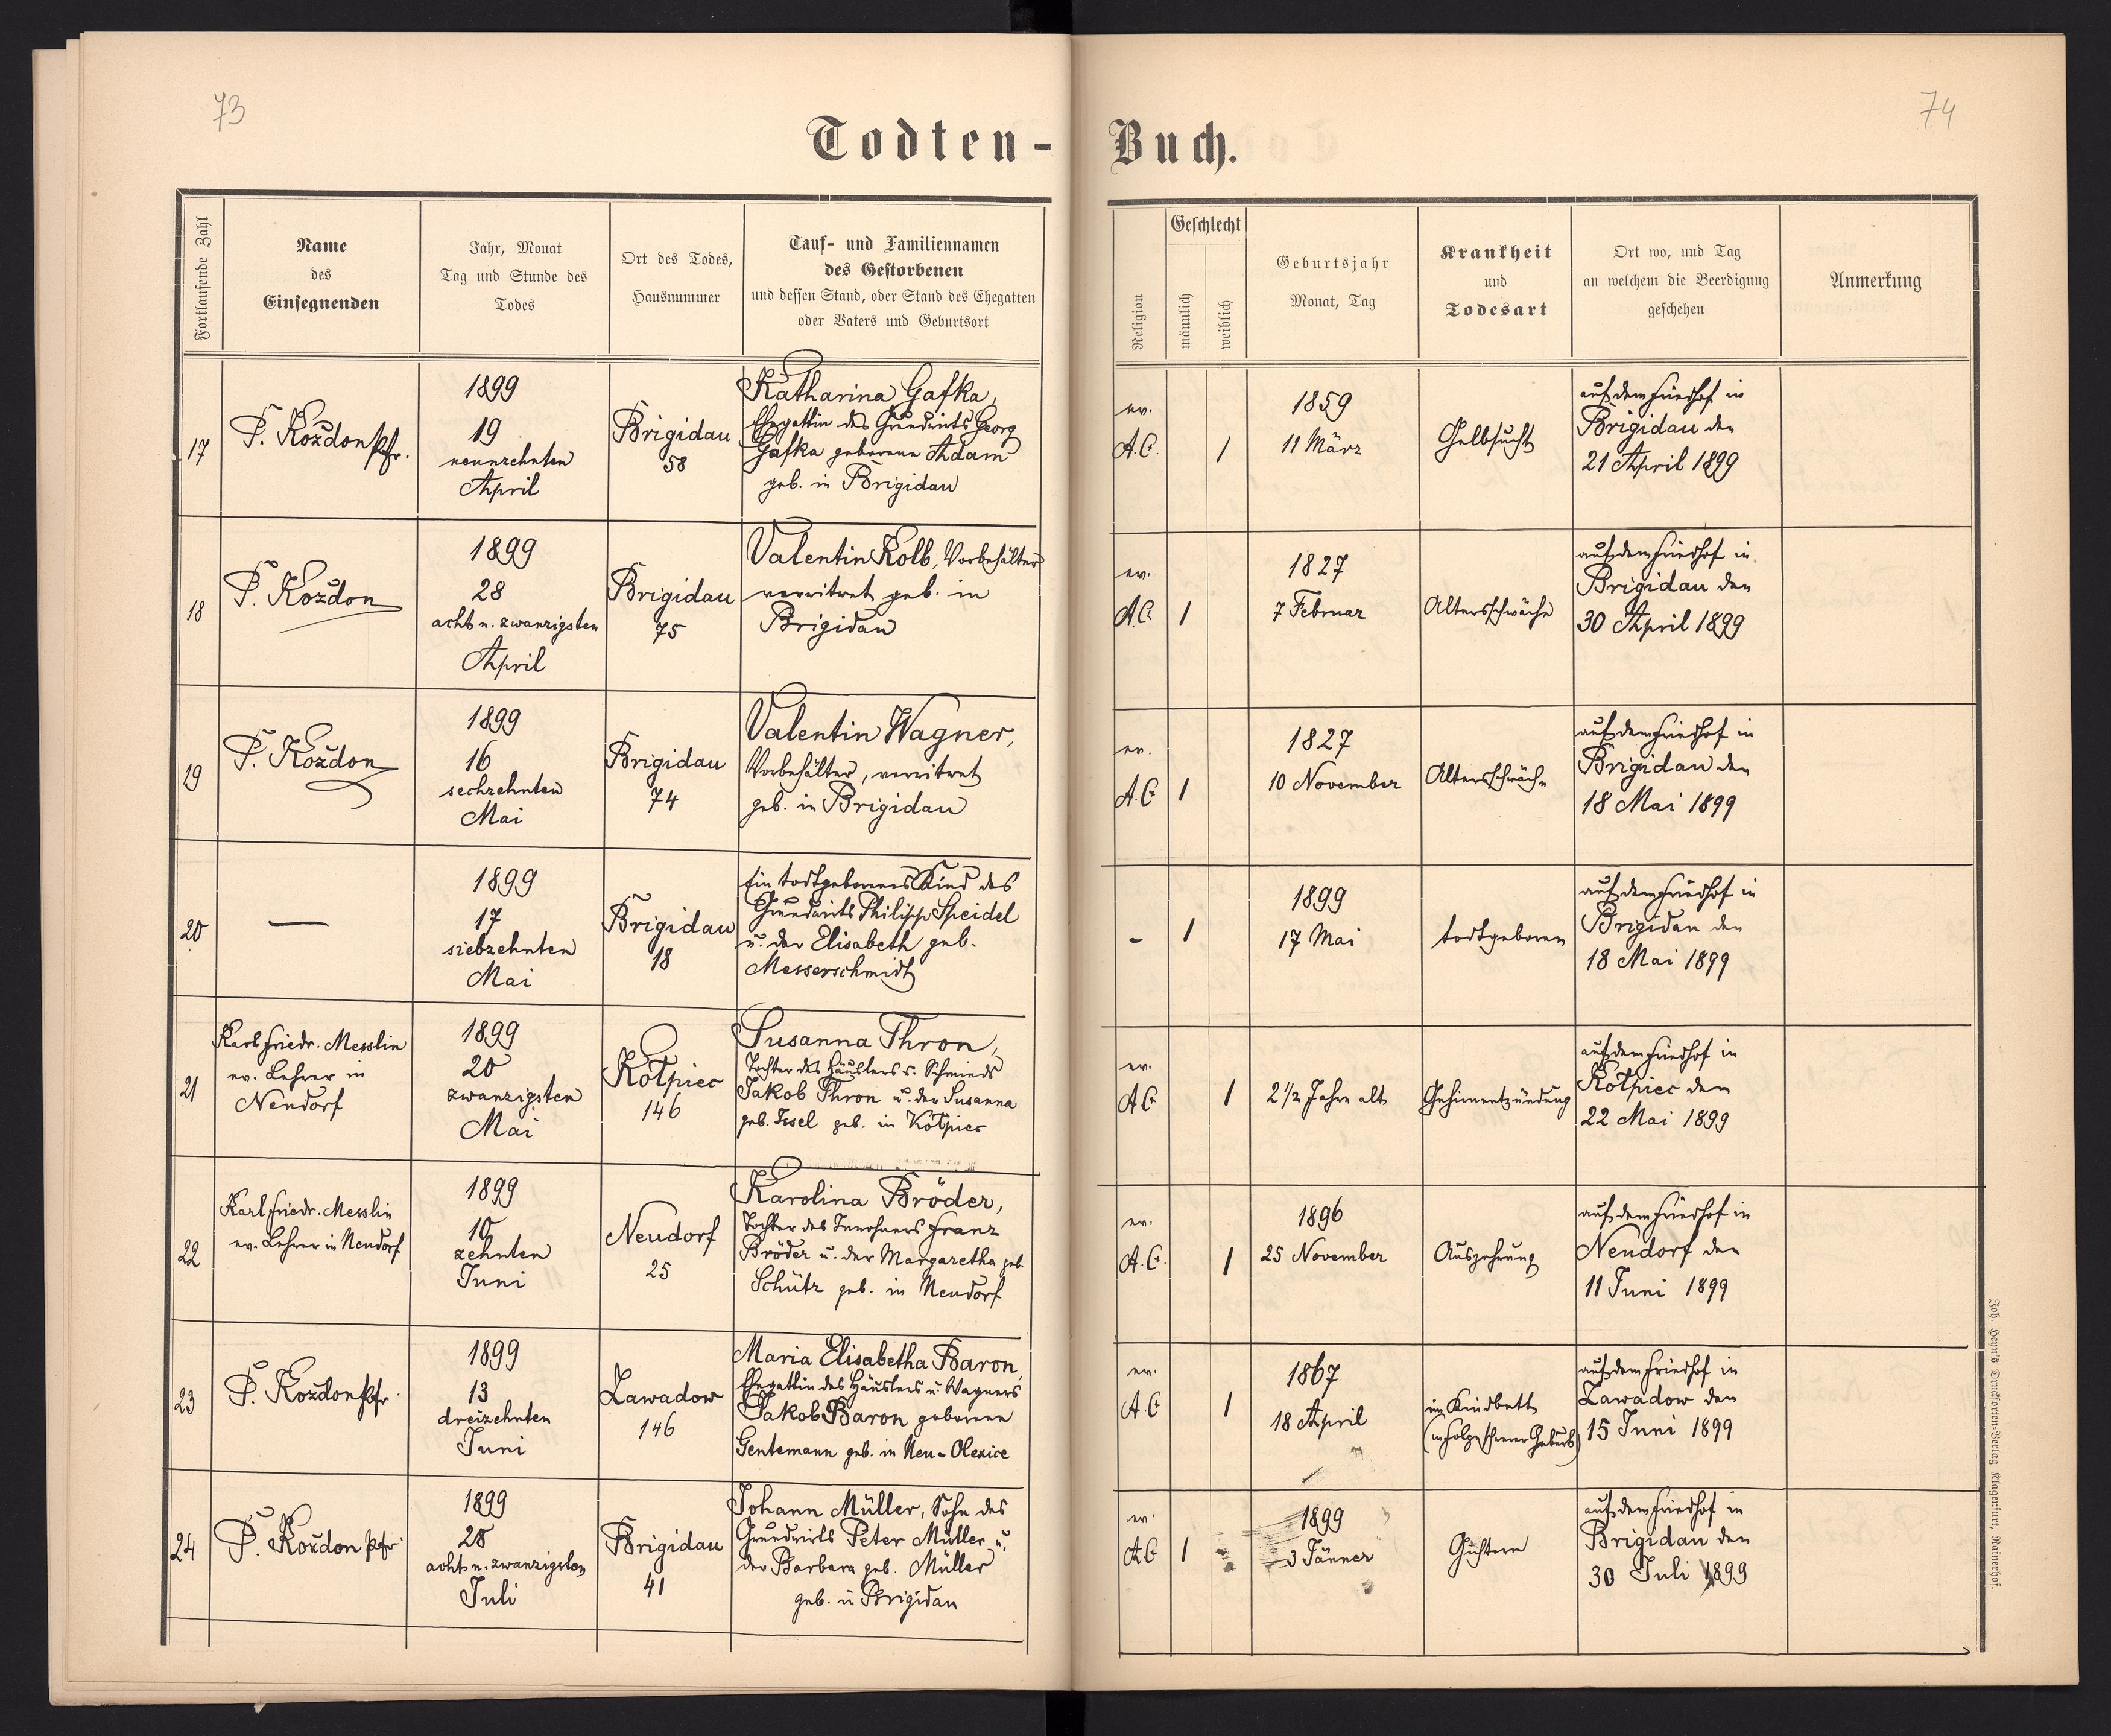 73
74
Todten-
Buch.
Fortlaufende Zahl
Name
des
Einsegnenden
Jahr, Monat
Tag und Stunde des
Todes
Ort des Todes,
Hausnummer
Tauf- und Familiennamen
des Gestorbenen
und dessen Stand, oder Stand des Ehegatten
oder Vaters und Geburtsort
Religion
Geschlecht
männlich
weiblich
Geburtsjahr
Monat, Tag
Krankheit
und
Todesart
Ort wo, und Tag
an welchem die Beerdigung
geschehen
Anmerkung
17
P. Kożdon Pfr.
1899
19
neunzehnten
April
Brigidau
58
Katharina Gafka,
Ehegattin des Grundwirts Georg
Gafka geborene Adam
geb. in Brigidau
ev.
A.C.
1
1859
11 März
Gelbsucht
auf dem Friedhof in
Brigidau den
21 April 1899
18
P. Kożdon
1899
28
acht u. zwanzigsten
April
Brigidau
75
Valentin Kolb, Vorbehälter
verwitwet geb. in
Brigidau
ev.
A.C.
1
1827
7 Februar
Altersschwäche
auf dem Friedhof in
Brigidau den
30 April 1899
19
P. Kożdon
1899
16
sechzehnten
Mai
Brigidau
74
Valentin Wagner,
Vorbehälter, verwitwet
geb. in Brigidau
ev.
A.C
1
1827
10 November
Altersschwäche
auf dem Friedhof in
Brigidau den
18 Mai 1899
20
—
1899
17
siebzehnten
Mai
Brigidau
18
Ein todtgeborenes Kind des
Grundwirts Philipp Speidel
u. der Elisabeth geb.
Messerschmidt
-
1
1899
17 Mai
todtgeboren
auf dem Friedhof in
Brigidau den
18 Mai 1899
21
Karl Friedr. Messlin
ev. Lehrer in
Neudorf
1899
20
zwanzigsten
Mai
Kołpiec
146
Susanna Thron,
Tochter des Häuslers u. Schmieds
Jakob Thron u. der Susanna
geb. Issel geb. in Kołpiec
ev.
A.C
1
2 1/2 Jahre alt
Gehirnentzündung
auf dem Friedhof in
Kołpiec den
22 Mai 1899
22
Karl Friedr. Messlin
ev. Lehrer in Neudorf
1899
10
zehnten
Juni
Neudorf
25
Karolina Bröder,
Tochter des Inwohners Franz
Bröder u. der Margaretha geb.
Schütz geb. in Neudorf
ev.
A.C.
1
1896
25 November
Auszehrung
auf dem Friedhof in
Neudorf den
11 Juni 1899
23
P. Kożdon Pfr.
1899
13
dreizehnten
Juni
Zawadow
146
Maria Elisabetha Baron,
Ehegattin des Häuslers u. Wagners
Jakob Baron geborene
Gentemann geb. in Neu-Olexice
ev.
A.C
1
1867
18 April
im Kindbett
(infolge schwerer Geburt)
auf dem Friedhof in
Zawadow den
15 Juni 1899
24
P. Kożdon Pfr.
1899
28
acht u. zwanzigsten
Juli
Brigidau
41
Johann Müller, Sohn des
Grundwirts Peter Müller u.
der Barbara geb. Müller
geb. in Brigidau
ev.
A.C
1
1899
3 Jänner
Gichtern
auf dem Friedhof in
Brigidau den
30 Juli 1899
Joh. Heyn's Drucksorten-Verlag Klagenfurt, Rainerhof.